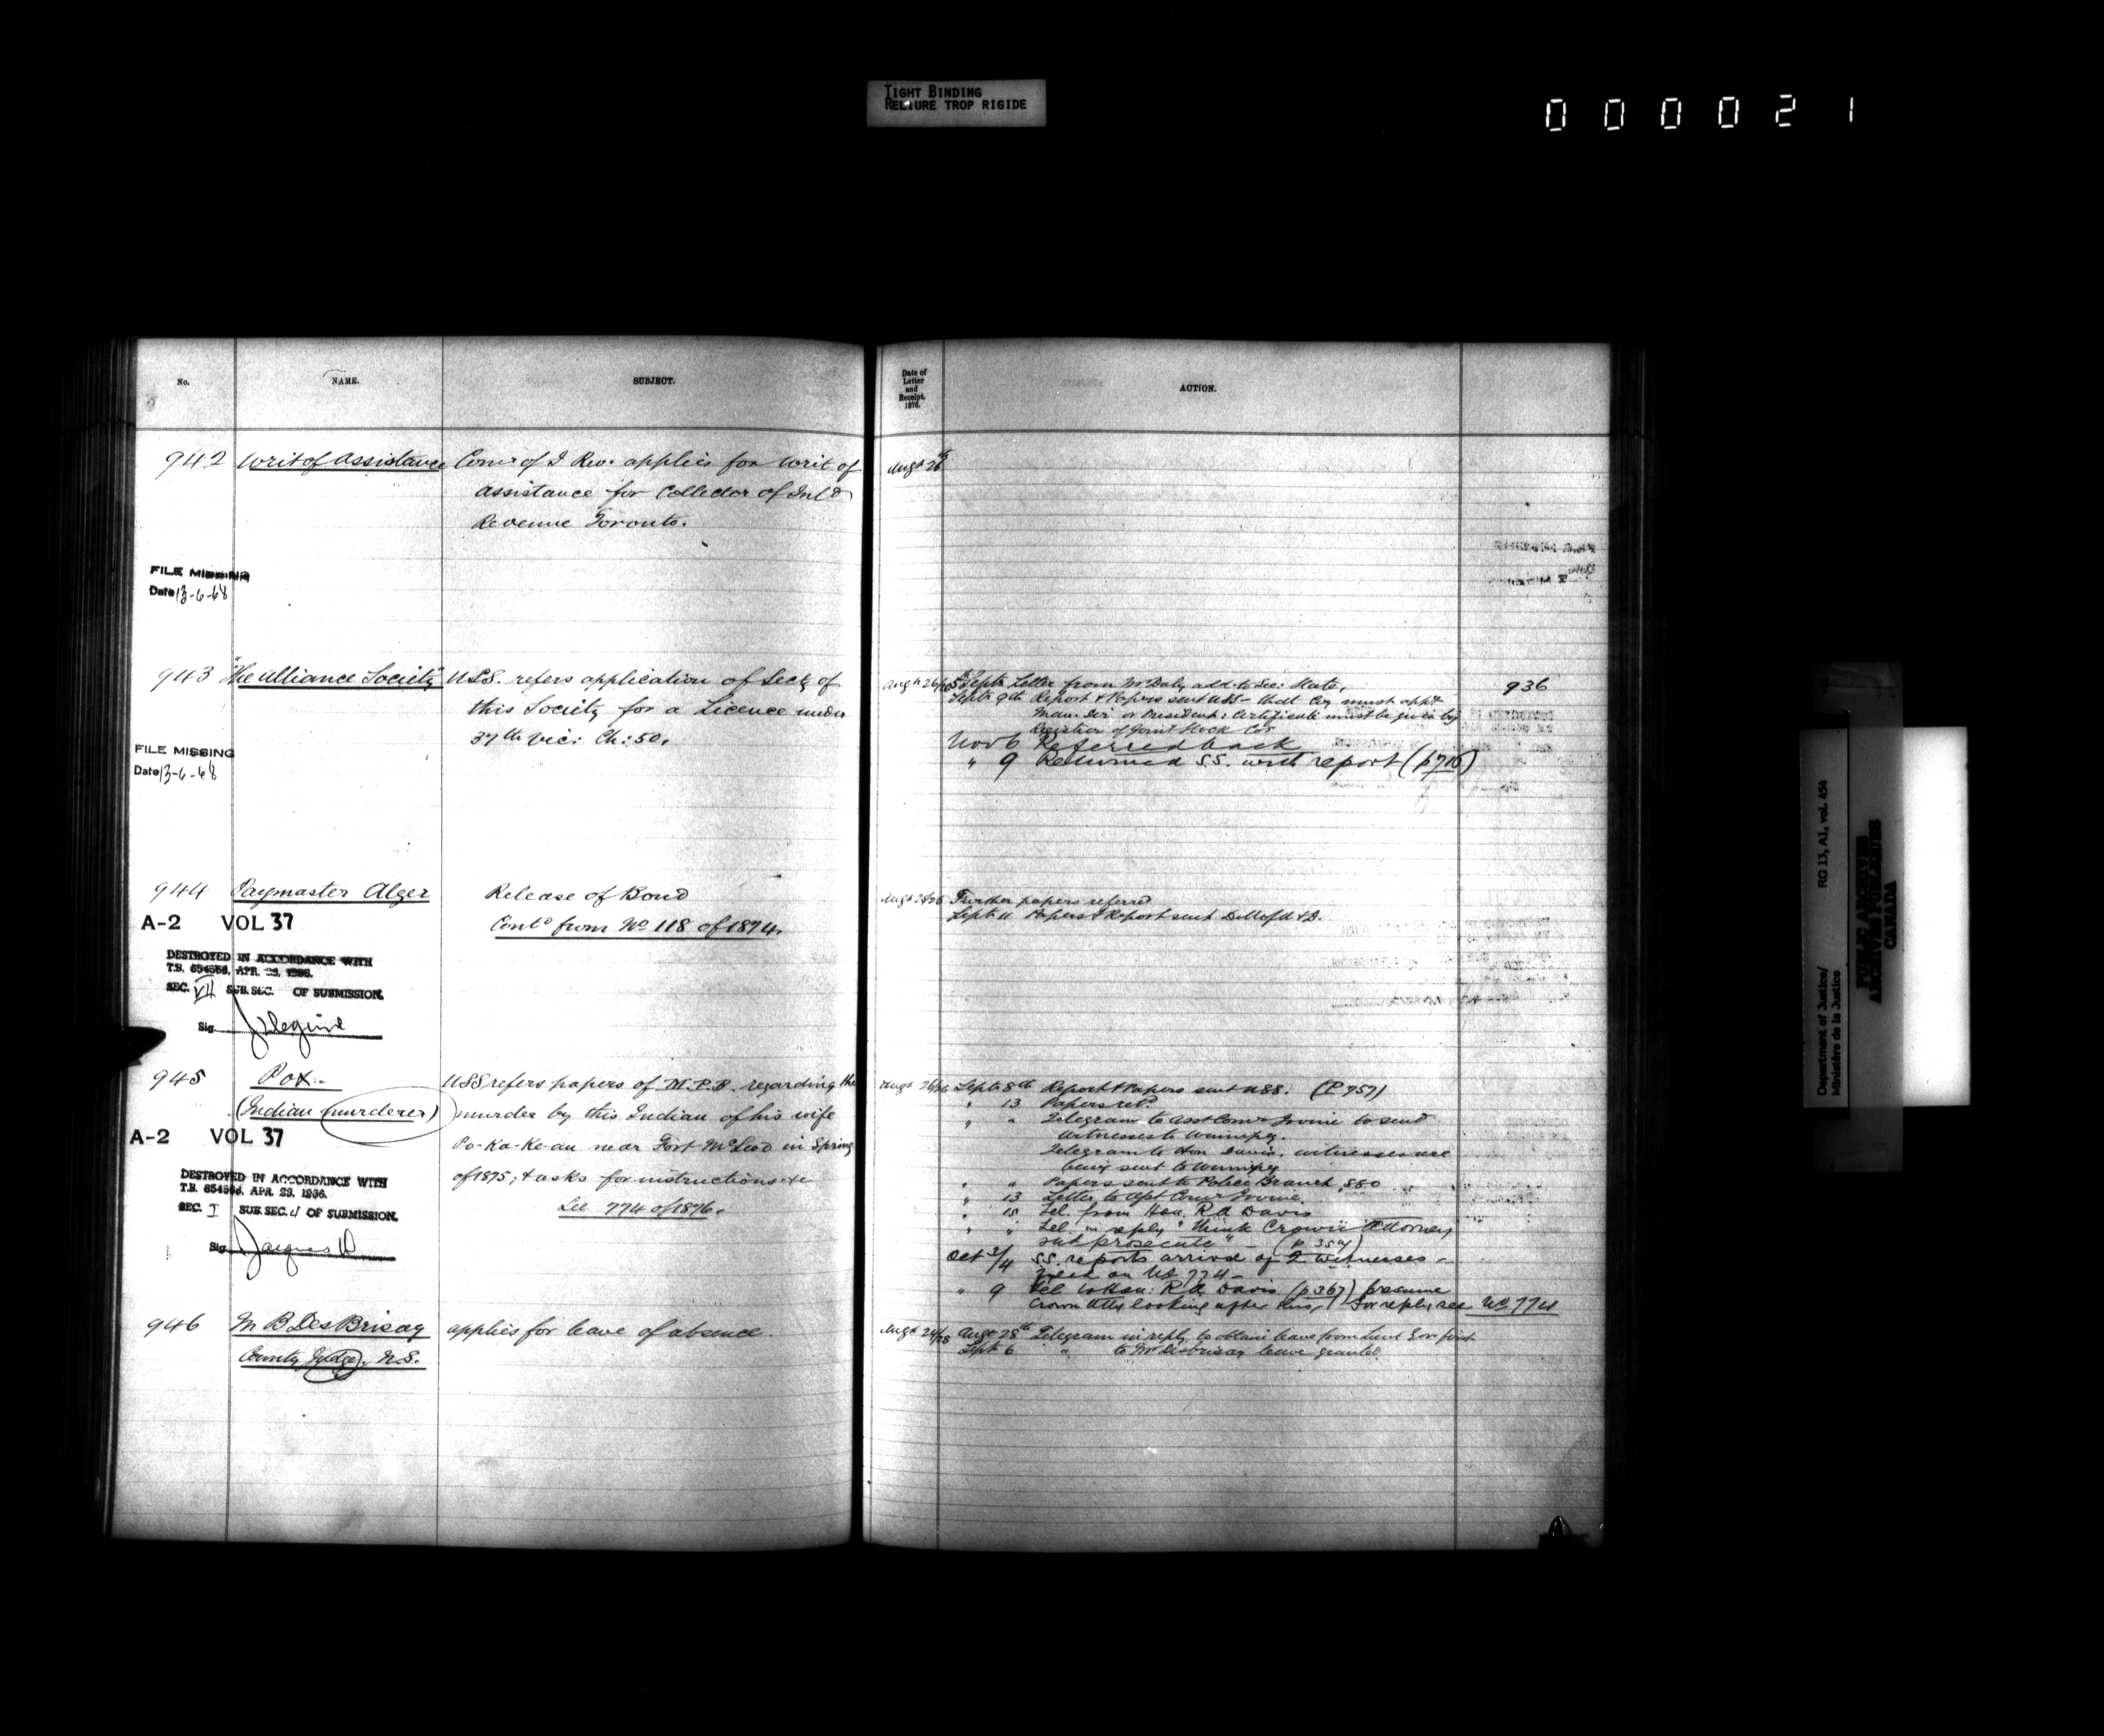 TIGHT BINDING
RELIURE TROP RIGIDE
000021
No.
NAME.
SUBJECT.
942 Writ of Assistance Comr of I Rev. applies for writ of
assistance for Collector of Inld
Revenue Toronto.
FILE MISSING
Date 13-6-68
943 "The Alliance Society" U.S.S. refers application of Secty of
this Society for a Licence under
37th Vic: Ch: 50.
FILE MISSING
Date 13-6-68
944 Paymaster Alger Release of Bond
A-2 VOL 37 Contd from No 118 of 1874.
DESTROYED IN ACCORDANCE WITH
T.B. 654566, APR. 29, 1936.
SEC. VII SUB. SEC. OF SUBMISSION.
Sig.
945 Pox. U.S.S refers papers of M.P.B. regarding the
(Indian murderer) murder by this Indian of his wife
A-2 VOL 37 Po-Ka-Ke-an near Fort McLeod in Spring
of 1875; & asks for instructions etc
DESTROYED IN ACCORDANCE WITH
T.B. 654566, APR. 29, 1936.
See 774 of 1876.
SEC. I SUB. SEC. d OF SUBMISSION.
Sig.
946 M B DesBrisay applies for leave of absence.
County Judge, N.S.
Date of
Letter
and
Receipt.
1876.
ACTION.
Augt 26th
Augt 26/26 5th Septr Letter from Mr Daly add. to Sec: State, 936
Septr 9th Report & Papers sent USS - that Coy must appt
Man. Dir. or President: Certificate must be given by
Registrar of Joint Stock Cos
Nov 6 Referred back
" 9 Returned S.S. with report (p 716)
Further papers referred
Septr 11 Papers & Report sent D. M of M & D.
Augt 26/26 Septr 8th Report & Papers sent USS. (P 757)
" 13 Papers retd
" " Telegram to Asst Comr Irvine to send
witnesses to Winnipeg.
Telegram to Hon Davis, witnesses are
being sent to Winnipeg
" " Papers sent to Police Branch, 880
" 13 Letter to Asst Comr Irvine.
" 15 Tel. from Hon. R A Davis
" " Tel in reply "think Crown Attorney
shd prosecute" (p 354)
Oct 3/4 S.S. reports arrival of 2 witnesses -
Filed on No 774 -
" 9 Tel. to Hon: R A Davis (p 367) presume
Crown Atty looking after this, For reply see No 774
Augt 24/28 Augt 28th Telegram in reply to obtain leave from Lieut Gov first
Septr 6 " to Mr DesBrisay leave granted.
Department of Justice/
Ministère de la Justice
RG 13, A1, vol. 454
PUBLIC ARCHIVES
ARCHIVES PUBLIQUES
CANADA